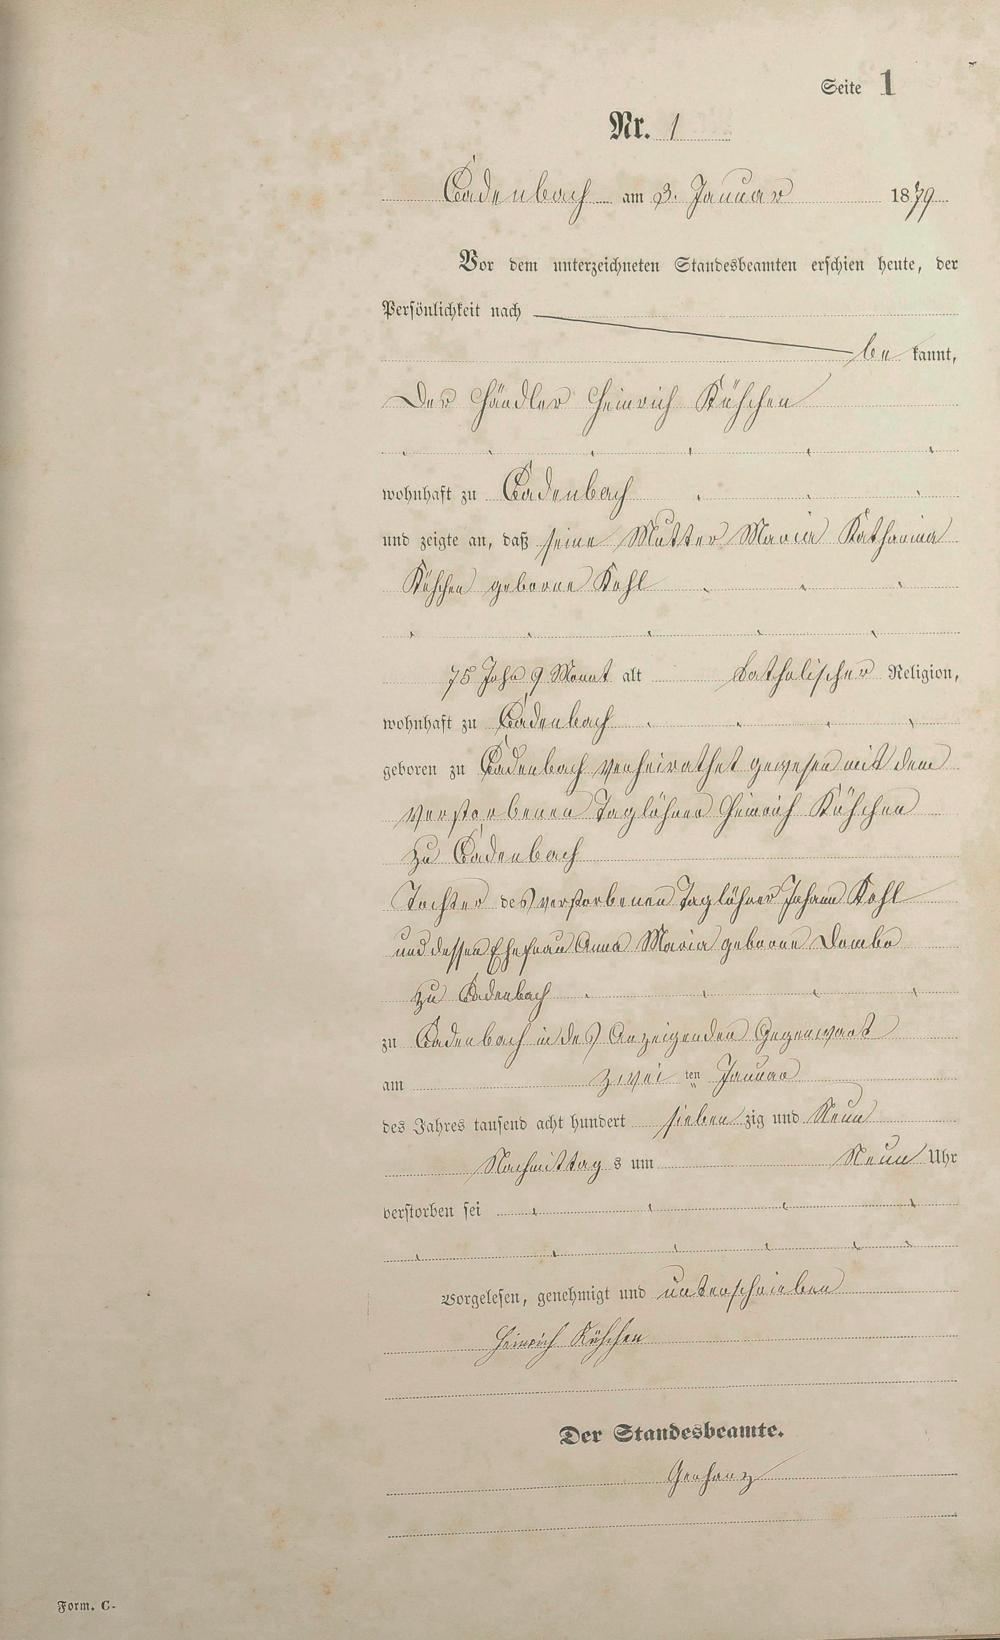 Seite 1
Nr. 1
Cadenbach am 3. Januar 1879
Vor dem unterzeichneten Standesbeamten erschien heute, der
Persönlichkeit nach
be kannt,
Der Händler Heinrich Kühchen
wohnhaft zu Cadenbach
und zeigte an, daß seine Mutter Maria Katharina
Kühchen geborne Kohl
75 Jahr 9 Monat alt katholischer Religion,
wohnhaft zu Cadenbach
geboren zu Cadenbach verheirathet gewesen mit dem
verstorbenen Taglöhner Heinrich Kühchen
zu Cadenbach
Tochter des verstorbenen Taglöhner Johann Kohl
und dessen Ehefrau Anna Maria geborne
zu Cadenbach
zu Cadenbach in des Anzeigenden Gegenwart
am zwei ten Januar
des Jahres tausend acht hundert sieben zig und Neun
Nachmittag s um Neun Uhr
verstorben sei
Vorgelesen, genehmigt und unterschrieben
Heinrich Kühchen
Der Standesbeamte.
Gerharz
Form. C.